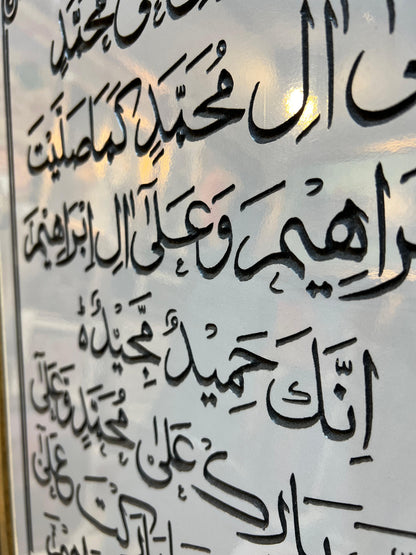 مُحَمَّدٍ
اٰلِ مُحَمَّدٍ كَمَا صَلَّيْتَ
اِبْرَاهِيْمَ وَعَلٰٓى اٰلِ اِبْرَاهِيْمَ
اِنَّكَ حَمِيْدٌ مَّجِيْدٌ ؕ
بَارِكْ عَلٰى مُحَمَّدٍ وَّعَلٰٓى
بَارَكْتَ عَلٰٓى